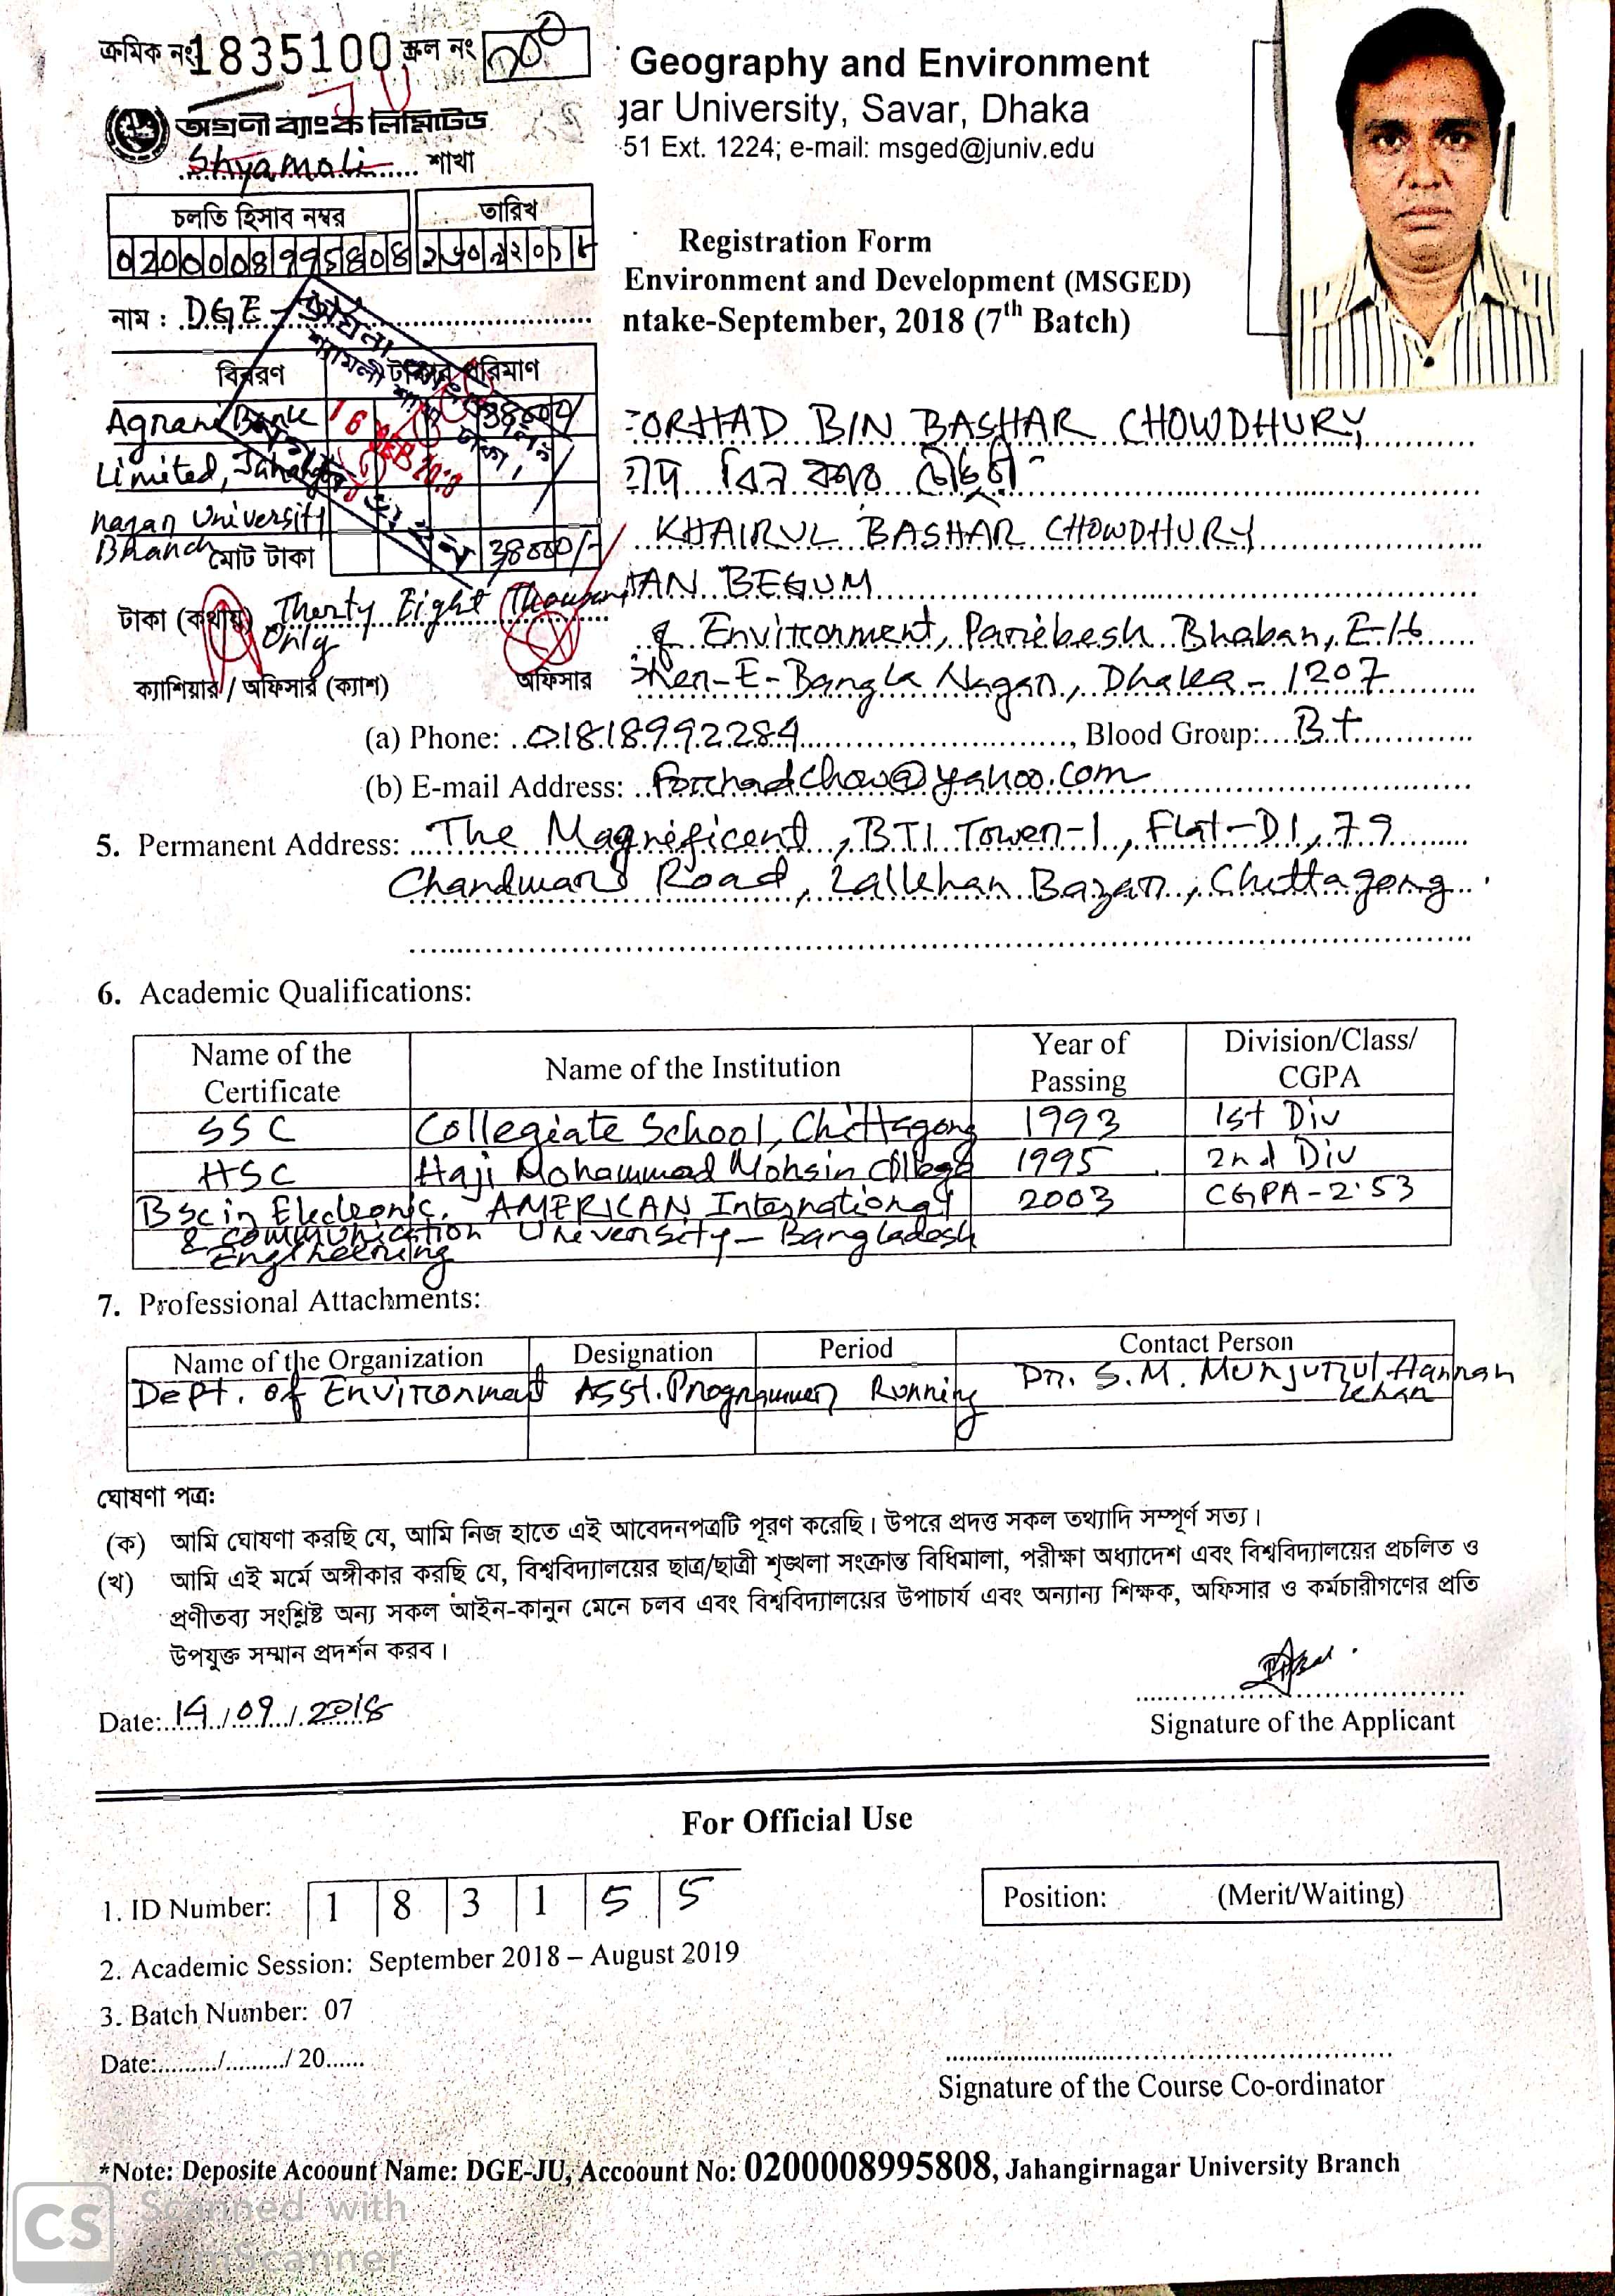 ক্রমিক নং 1835100 স্ক্রল নং
JU
অগ্রণী ব্যাংক লিমিটেড
Shyamoli শাখা
চলতি হিসাব নম্বর তারিখ
নাম : DGE-
বিবরণ টাকার পরিমাণ
Agrani Bank 38000/
Limited, Jahangir
nagar University
Branch মোট টাকা 38000/-
টাকা (কথায়) Therty Eight Thousand
Only
ক্যাশিয়ার / অফিসার (ক্যাশ) অফিসার
Geography and Environment
gar University, Savar, Dhaka
51 Ext. 1224; e-mail: msged@juniv.edu
Registration Form
Environment and Development (MSGED)
ntake-September, 2018 (7th Batch)
FORHAD BIN BASHAR CHOWDHURY
বিন বাশার চৌধুরী
KHAIRUL BASHAR CHOWDHURY
AN BEGUM
of Environment, Paribesh Bhaban, E/16
Sher-E-Bangla Nagar, Dhaka-1207
(a) Phone: 01818992284, Blood Group: B+
(b) E-mail Address: forhadchow@yahoo.com
5. Permanent Address: The Magnificent, BTI Tower-1, Flat-D1, 79
Chandmari Road, Lalkhan Bazar, Chittagong.
6. Academic Qualifications:
Name of the Certificate Name of the Institution Year of Passing Division/Class/ CGPA
SSC Collegiate School, Chittagong 1993 1st Div
HSC Haji Mohammad Mohsin College 1995 2nd Div
Bsc in Electronic AMERICAN International 2003 CGPA-2.53
& communication University-Bangladesh
Engineering
7. Professional Attachments:
Name of the Organization Designation Period Contact Person
Dept. of Environment Asst. Programmer Running Dr. S.M. Munjurul Hannan
Khan
ঘোষণা পত্র:
(ক) আমি ঘোষণা করছি যে, আমি নিজ হাতে এই আবেদনপত্রটি পূরণ করেছি। উপরে প্রদত্ত সকল তথ্যাদি সম্পূর্ণ সত্য।
(খ) আমি এই মর্মে অঙ্গীকার করছি যে, বিশ্ববিদ্যালয়ের ছাত্র/ছাত্রী শৃঙ্খলা সংক্রান্ত বিধিমালা, পরীক্ষা অধ্যাদেশ এবং বিশ্ববিদ্যালয়ের প্রচলিত ও
প্রণীতব্য সংশ্লিষ্ট অন্য সকল আইন-কানুন মেনে চলব এবং বিশ্ববিদ্যালয়ের উপাচার্য এবং অন্যান্য শিক্ষক, অফিসার ও কর্মচারীগণের প্রতি
উপযুক্ত সম্মান প্রদর্শন করব।
Date: 14/09/2018
Signature of the Applicant
For Official Use
1. ID Number: 1 8 3 1 5 5
Position: (Merit/Waiting)
2. Academic Session: September 2018 – August 2019
3. Batch Number: 07
Date:........./........./ 20......
Signature of the Course Co-ordinator
*Note: Deposite Acoount Name: DGE-JU, Accoount No: 0200008995808, Jahangirnagar University Branch
CS Scanned with
CamScanner